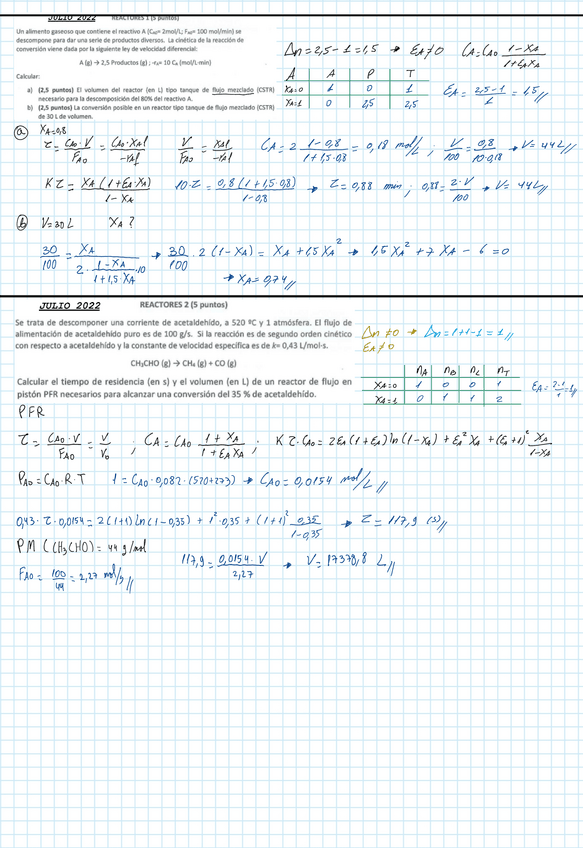 JULIO 2022 REACTORES 1 (5 puntos)
Un alimento gaseoso que contiene el reactivo A (CA0= 2mol/L; FA0= 100 mol/min) se
descompone para dar una serie de productos diversos. La cinética de la reacción de
conversión viene dada por la siguiente ley de velocidad diferencial:
A (g) → 2,5 Productos (g) ; -rA= 10 CA (mol/L·min)
Calcular:
a) (2,5 puntos) El volumen del reactor (en L) tipo tanque de flujo mezclado (CSTR)
necesario para la descomposición del 80% del reactivo A.
b) (2,5 puntos) La conversión posible en un reactor tipo tanque de flujo mezclado (CSTR)
de 30 L de volumen.
Δn = 2,5 - 1 = 1,5 → EA ≠ 0 CA = CA0 (1 - XA)/(1 + EA XA)
A | A | P | T
XA=0 | 1 | 0 | 1
XA=1 | 0 | 2,5 | 2,5
EA = (2,5 - 1)/1 = 1,5 //
a) XA = 0,8
τ = CA0·V/FA0 = CA0·XAl/-rAl V/FA0 = XAl/-rAl CA = 2 (1 - 0,8)/(1 + 1,5·0,8) = 0,18 mol/L ; V/100 = 0,8/(10·0,18) → V = 44 L //
K τ = XA (1 + EA·XA)/(1 - XA) 10·τ = 0,8 (1 + 1,5·0,8)/(1 - 0,8) → τ = 0,88 min ; 0,88 = 2·V/100 → V = 44 L //
b) V = 30 L XA ?
30/100 = XA/(2·(1 - XA)/(1 + 1,5 XA)·10) → 30/100 · 2 (1 - XA) = XA + 1,5 XA² → 1,5 XA² + 7 XA - 6 = 0
→ XA = 0,74 //
JULIO 2022 REACTORES 2 (5 puntos)
Se trata de descomponer una corriente de acetaldehído, a 520 ºC y 1 atmósfera. El flujo de
alimentación de acetaldehído puro es de 100 g/s. Si la reacción es de segundo orden cinético
con respecto a acetaldehído y la constante de velocidad específica es de k= 0,43 L/mol·s.
CH3CHO (g) → CH4 (g) + CO (g)
Calcular el tiempo de residencia (en s) y el volumen (en L) de un reactor de flujo en
pistón PFR necesarios para alcanzar una conversión del 35 % de acetaldehído.
Δn ≠ 0 → Δn = 1 + 1 - 1 = 1 //
EA ≠ 0
nA | nB | nC | nT
XA=0 | 1 | 0 | 0 | 1
XA=1 | 0 | 1 | 1 | 2
EA = (2-1)/1 = 1 //
PFR
τ = CA0·V/FA0 = V/V0 ; CA = CA0 (1 + XA)/(1 + EA XA) ; K τ·CA0 = 2EA (1 + EA) ln (1 - XA) + EA² XA + (EA + 1)² XA/(1 - XA)
PA0 = CA0·R·T 1 = CA0·0,082·(520+273) → CA0 = 0,0154 mol/L //
0,43·τ·0,0154 = 2 (1+1) ln (1 - 0,35) + 1²·0,35 + (1+1)² 0,35/(1 - 0,35) → τ = 117,9 (s) //
PM (CH3CHO) = 44 g/mol
FA0 = 100/44 = 2,27 mol/s //
117,9 = 0,0154·V/2,27 → V = 17378,8 L //